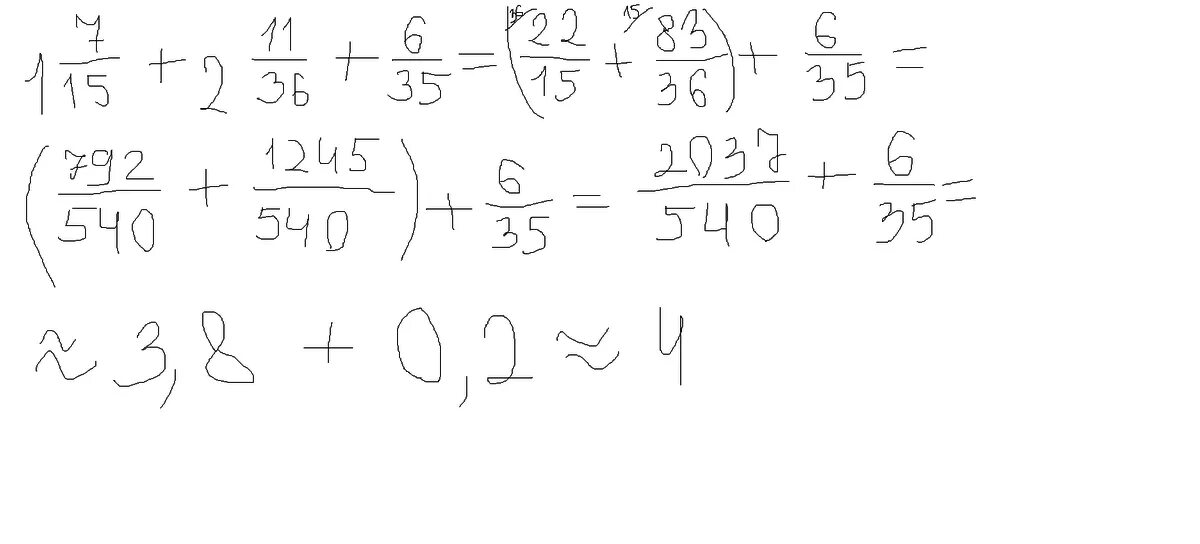 1 7/15 + 2 11/36 + 6/35 = (36/ 22/15 + 15/ 83/36) + 6/35 =
(792/540 + 1245/540) + 6/35 = 2037/540 + 6/35 =
≈ 3,8 + 0,2 ≈ 4